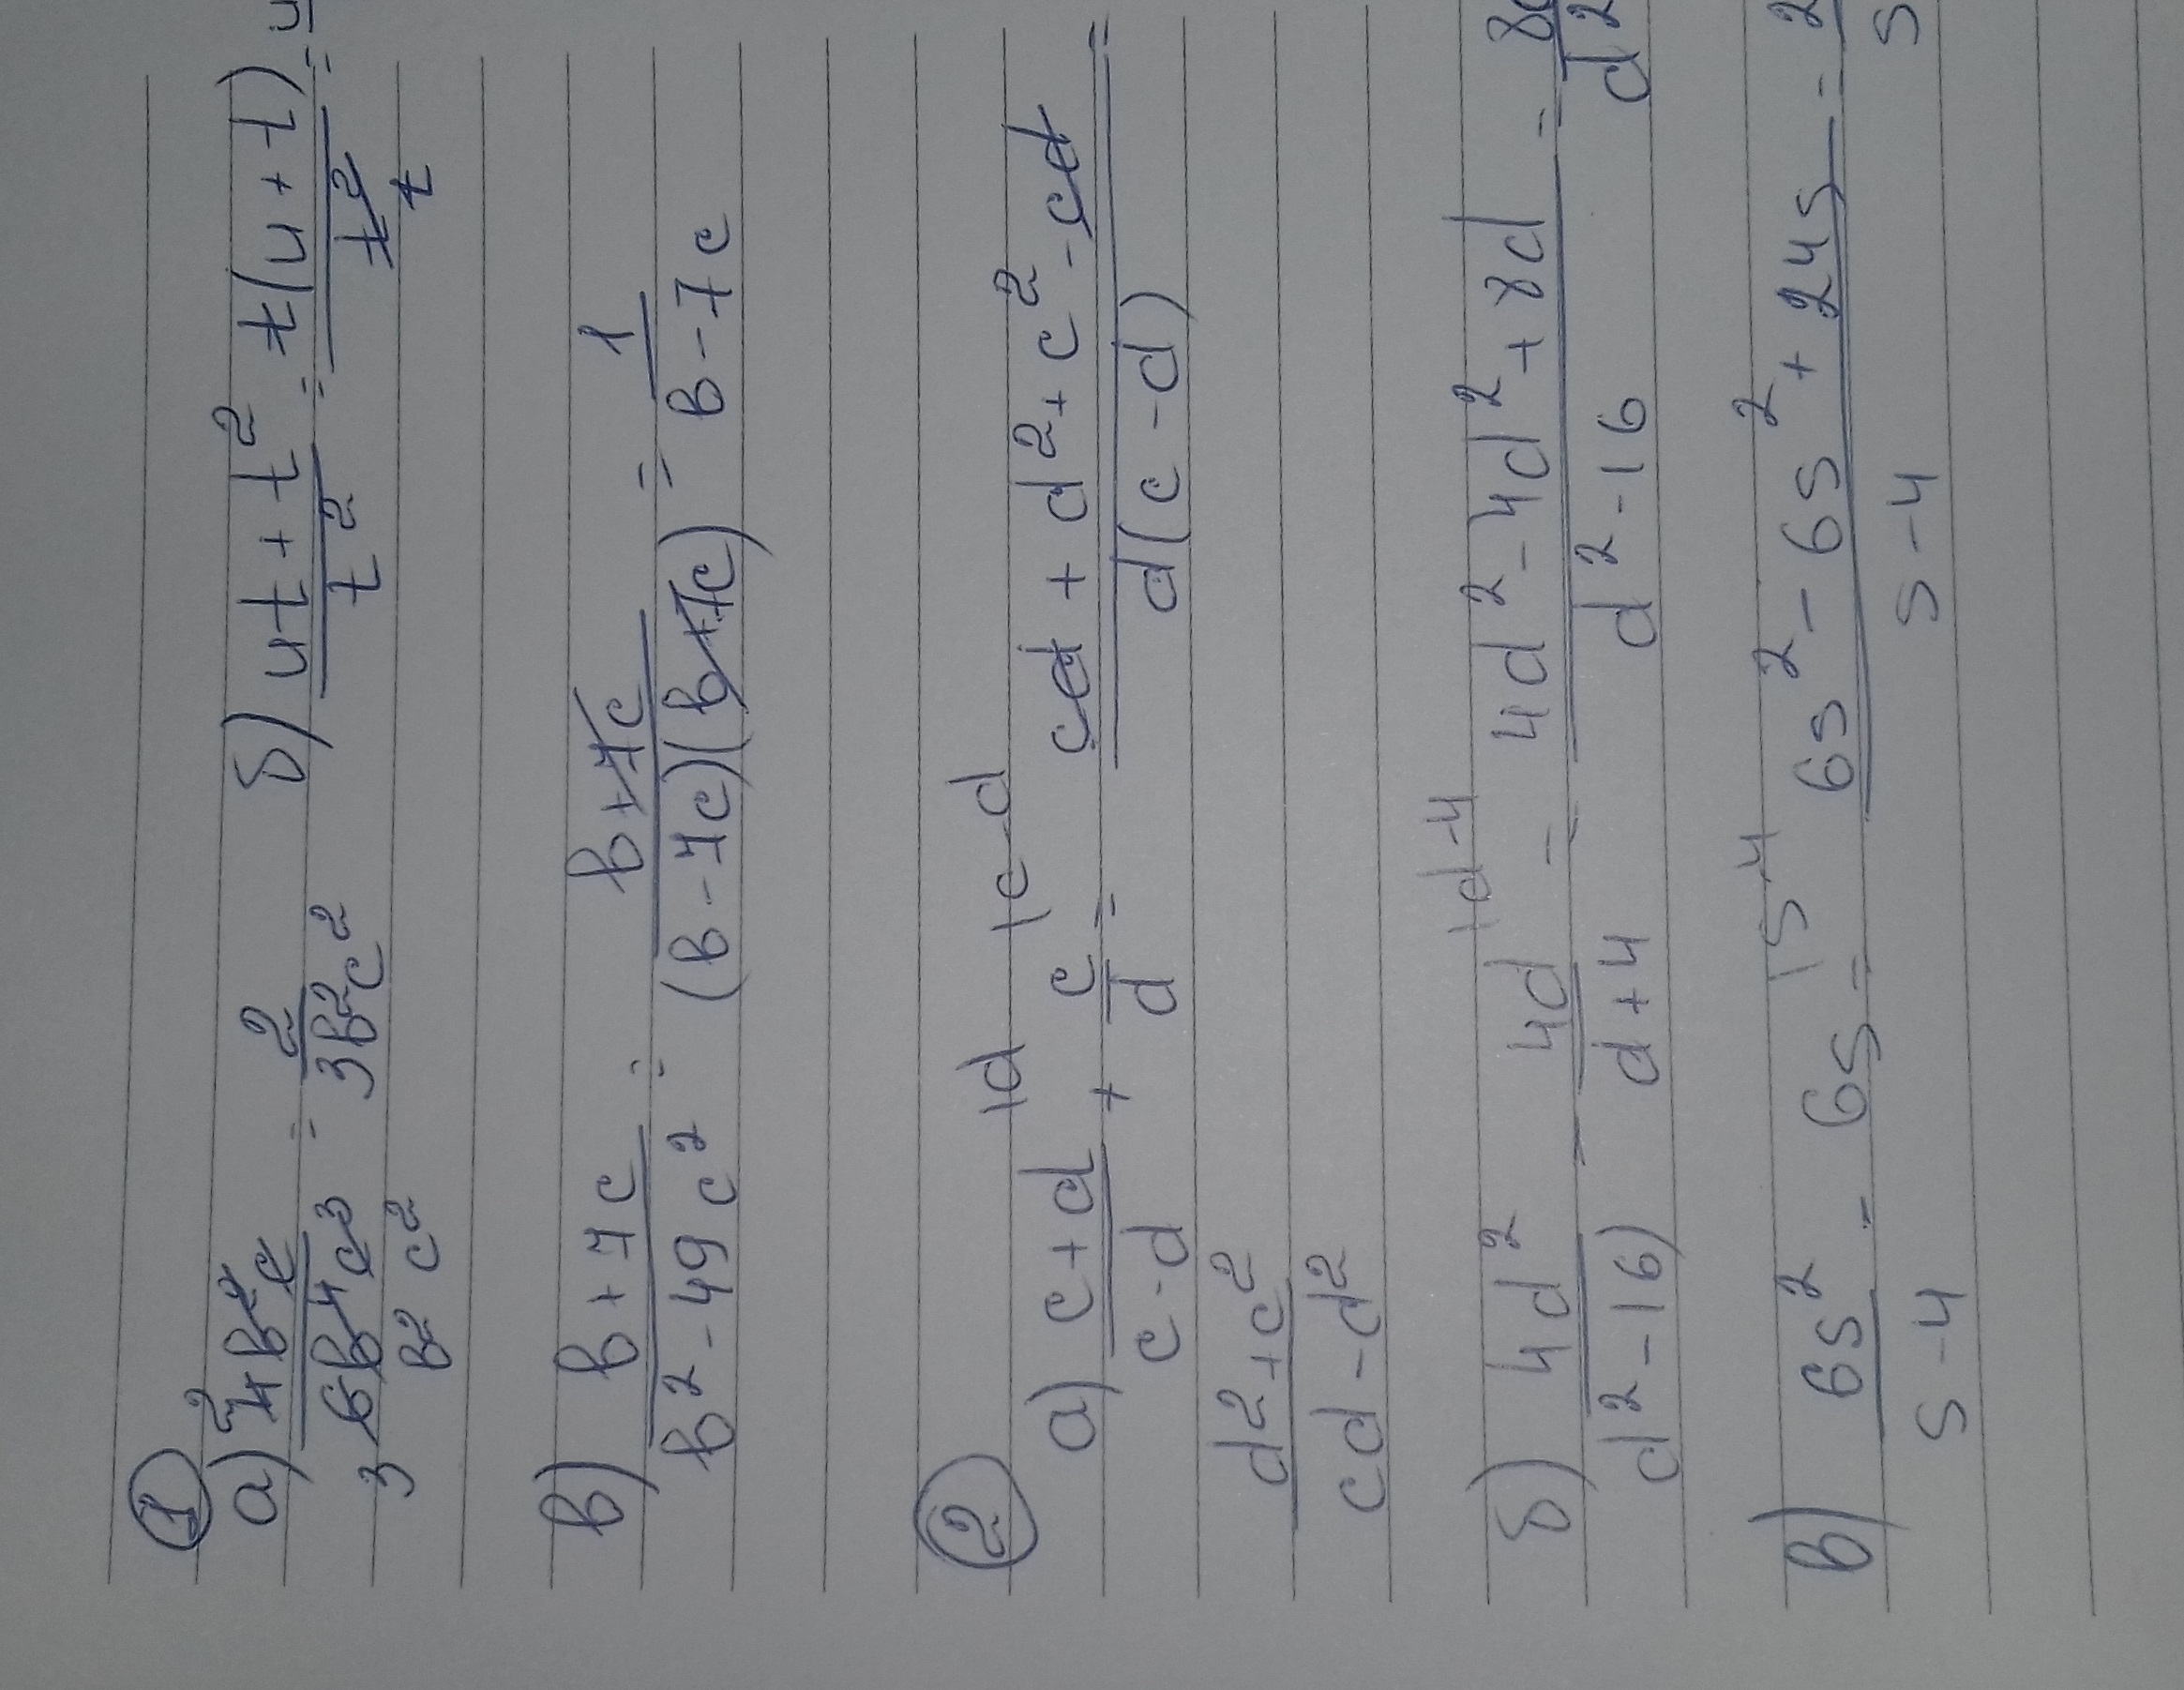 ①
а) 4b²c/6b⁴c³ = 2/3b²c²   б) ut + t²/t² = t(u + t)/t² = u
2   3   b² c²   t
в) b + 7c/b² - 49c² = b + 7c/(b - 7c)(b + 7c) = 1/b - 7c
②
а) c + d/c - d |d + c/d |c - d = cd + d² + c² - cd/d(c - d) =
d² + c²/cd - d²
б) 4d²/d² - 16) - 4d/d + 4 |d - 4 = 4d² - 4d² + 8d/d² - 16 = 8d/d²
в) 6s²/s - 4 - 6s |s - 4 = 6s² - 6s² + 24s/s - 4 = 2/s